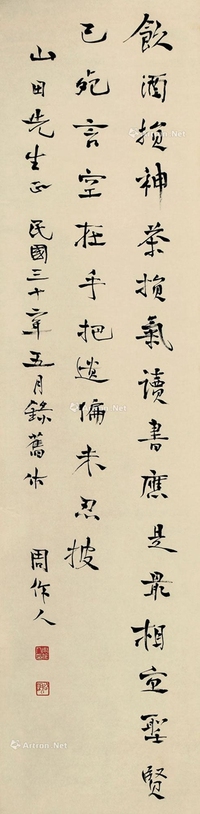 飲酒損神茶損氣讀書應是最相宜聖賢
已死言空在手把遺编未忍披
山田先生正 民國三十二年五月錄舊作
周作人
Artron.Net